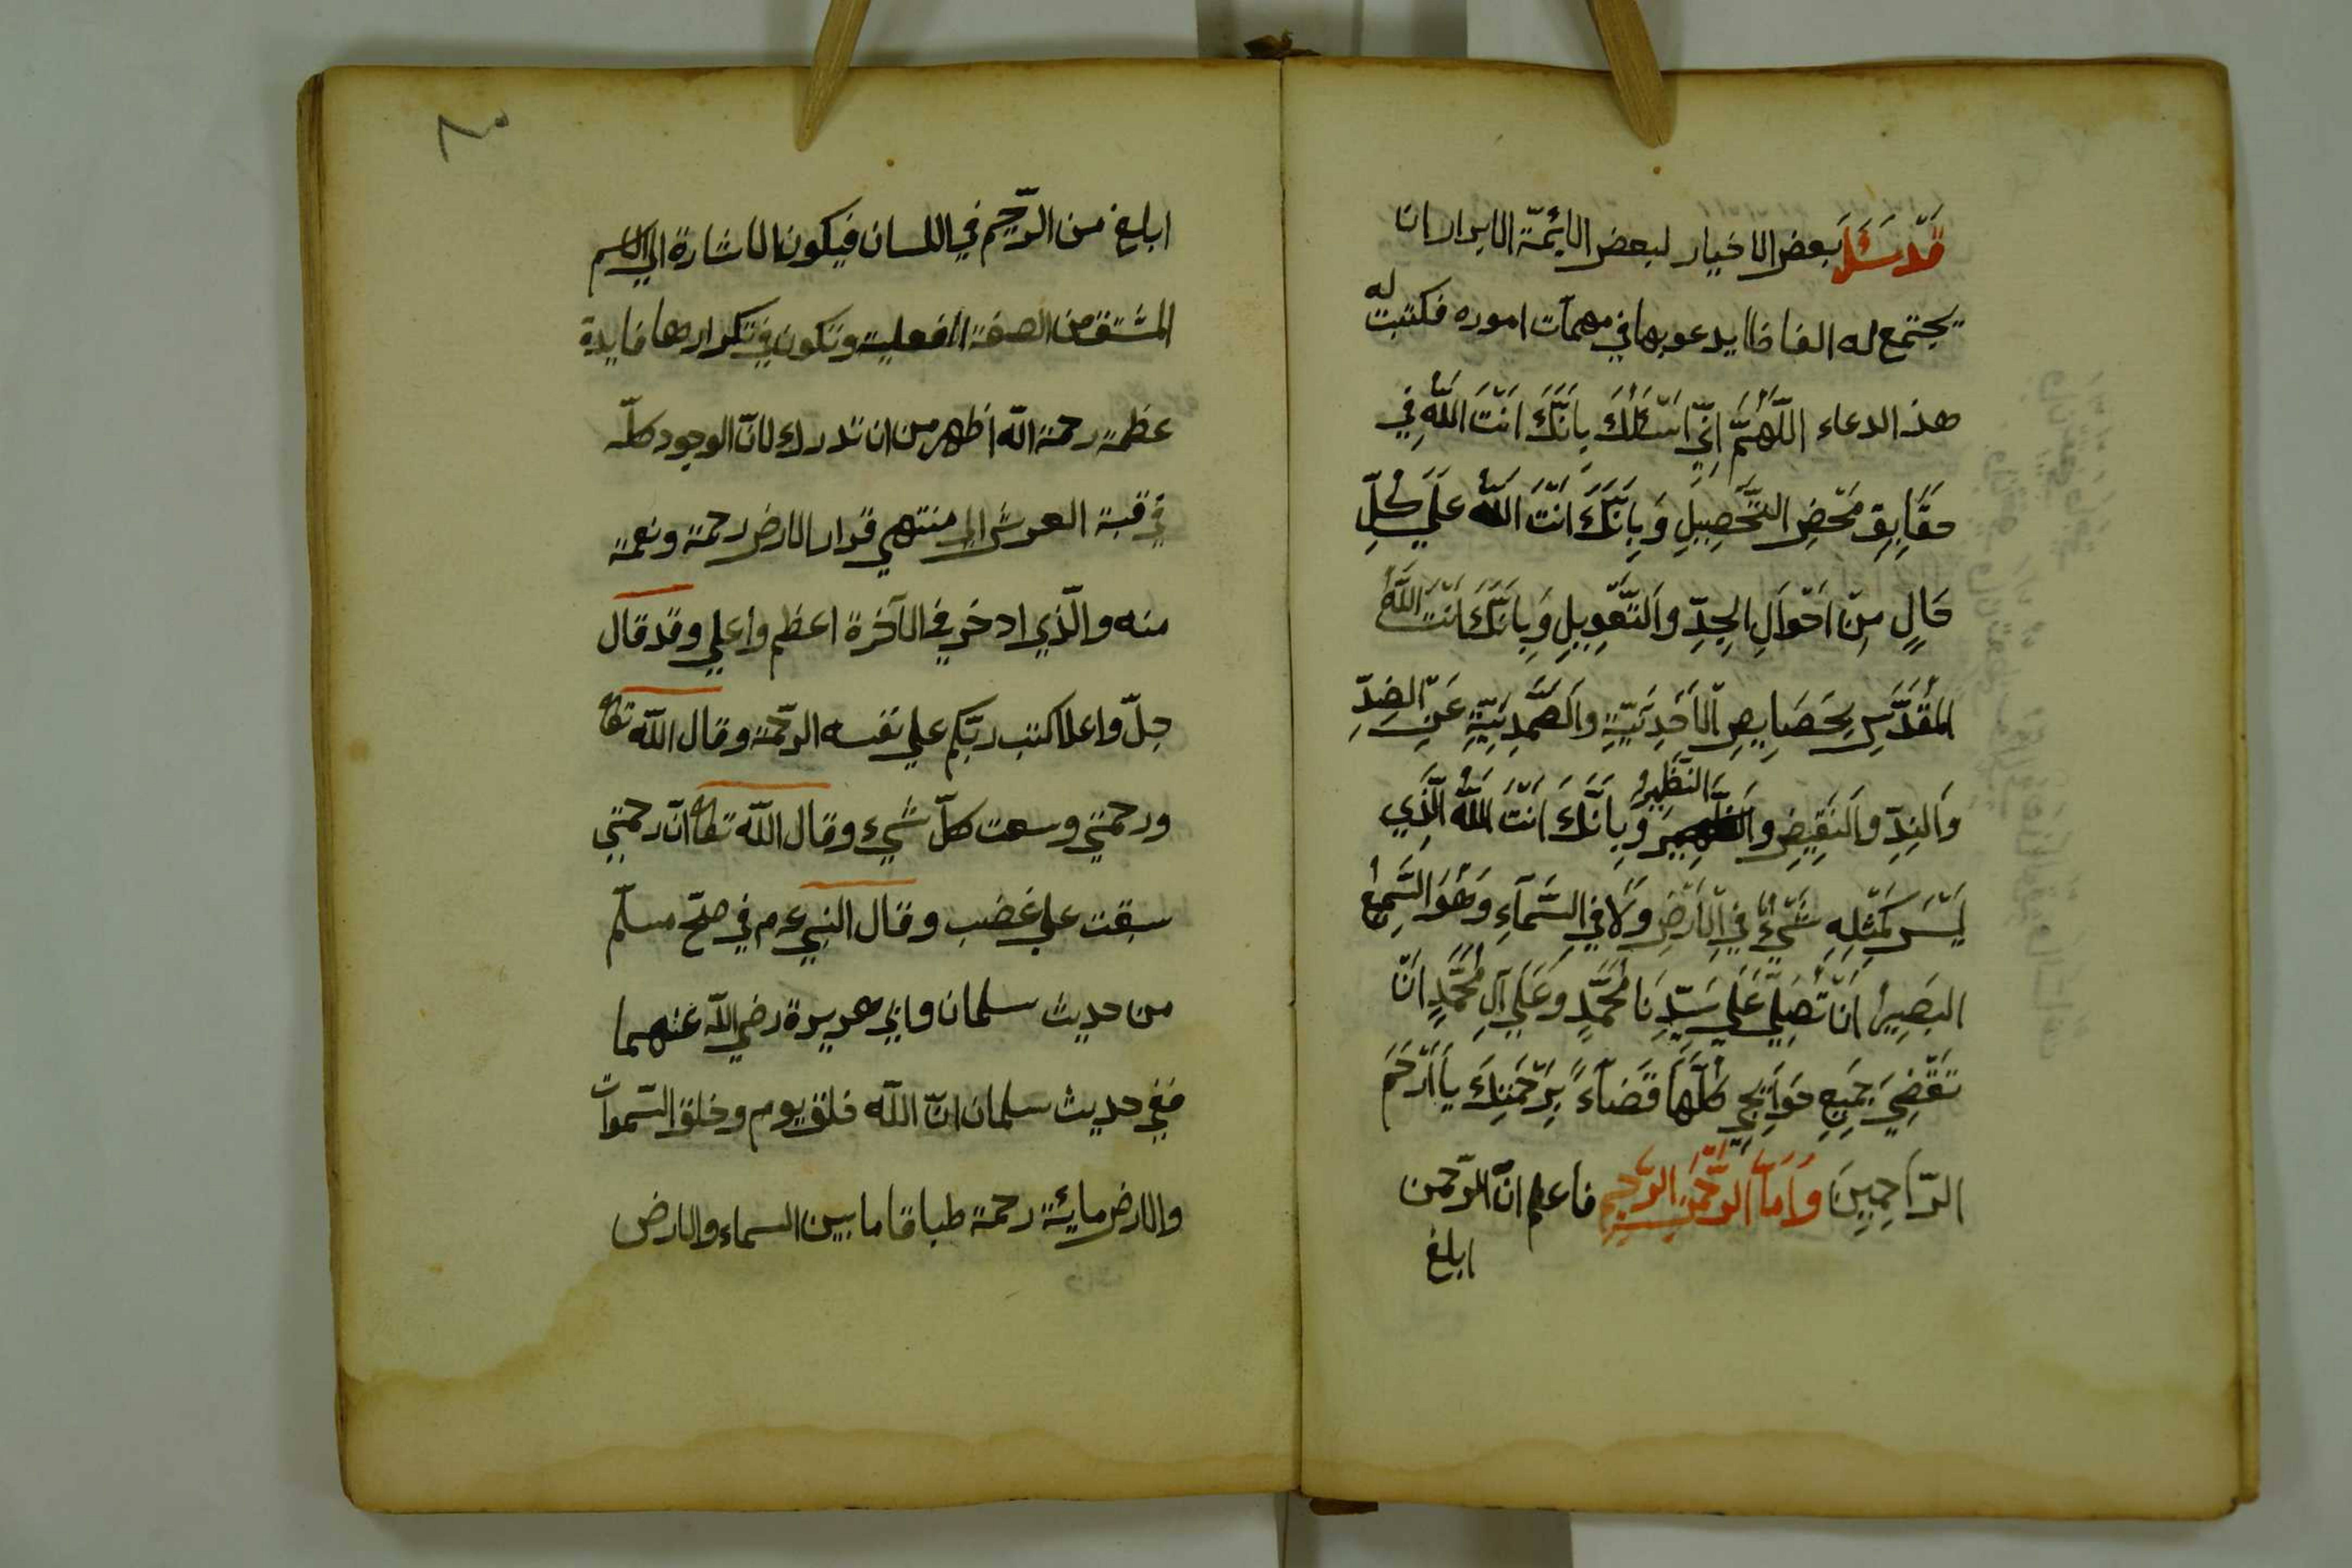 قَدْ سَئَلَ بعض الاخيار لبعض الائمّة الابرار ان
يجتمع له الفاظا يدعو بها في مهمات اموره فكتبت له
هذ الدعاء اللَّهُمَّ اِنِّي اَسْئَلُكَ بِاَنَّكَ اَنْتَ اللَّهُ فِي
حَقَايِقِ مَحْضِ التَّحْصِيلِ وَبِاَنَّكَ اَنْتَ اللَّهُ عَلَي كُلِّ
حَالٍ مِنْ اَحْوَالِ الجِدِّ وَالتَّعْوِيلِ وَبِاَنَّكَ اَنْتَ اللَّهُ
المُقَدَّسِ بِخَصَايِصِ الْاَحَدِيَّةِ وَالصَّمَدِيَّةِ عَنِ الضِدِّ
وَالنِدِّ وَالنَقِيضِ وَالنَّظِيرِ وَبِاَنَّكَ اَنْتَ اللَّهُ الَّذِي
لَيْسَ كَمِثْلِهِ شَيْءٌ فِي الْاَرْضِ وَلَا فِي السَّمَآءِ وَهُوَ السَّمِيعُ
البَصِيرُ اَنْ تُصَلِّي عَلَي سَيِّدِنَا مُحَمَّدٍ وَعَلَي آلِ مُحَمَّدٍ اَنْ
تَقْضِيَ جَمِيعِ حَوَايِجِي كُلَّهَا قَضَآءً بِرَحْمَتِكَ يَا اَرْحَمَ
الرَّاحِمِينَ وَاَمَّا الرَّحْمنِ الرَّحِيمِ فاعلم انّ الرّحمن
ابلغ
ابلغ من الرّحيم في اللسان فيكون الاشارة الي الاسم
المشتق من الصفة الفعلية وتكون في تكرارها فايدة
عظمة رحمة الله اظهر من ان تدرك لانّ الوجود كلّه
في قبة العرش الي منتهي قرار الارض رحمة ونعمة
منه والّذي ادخر في الآخرة اعظم واعلي وقد قال
جلّ واعلا كتب ربّكم علي نفسه الرّحمة وقال اللّه تعا
ورحمتي وسعت كلّ شيء وقال اللّه تعا انّ رحمتي
سبقت علي غضب وقال النبي عم في صحّ مسلّم
من حديث سلمان وابي هريرة رضي اللّه عنهما
ففي حديث سلمان انّ اللّه خلق يوم وخلق السّموات
والارض مائة رحمة طباقا ما بين السماء والارض